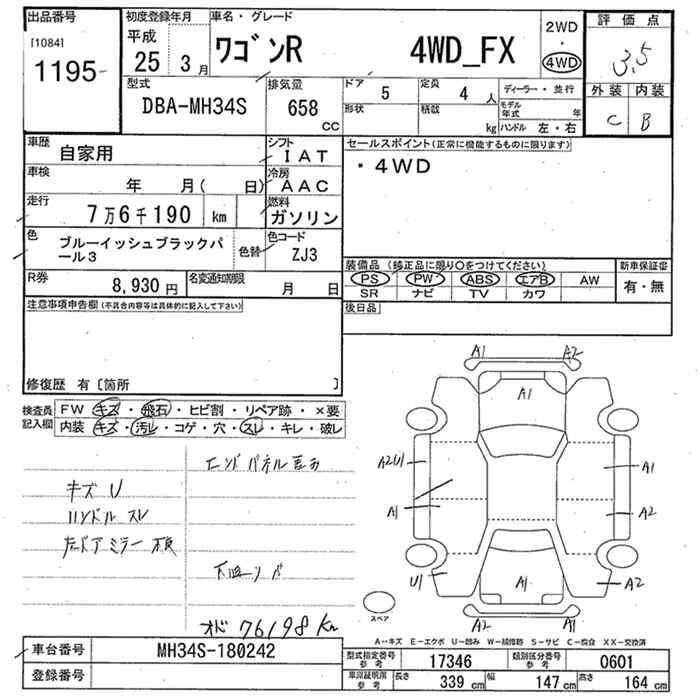 出品番号 初度登録年月 車名・グレード 2WD・4WD 評価点
[1084] 1195 平成25 3月 ワゴンR 4WD_FX 3.5
型式 排気量 ドア 5 定員 4人 ディーラー・並行 外装 内装
DBA-MH34S 658 CC 形状 積載 kg モデル年式 年 ハンドル 左・右 C B
車歴 自家用 シフト IAT セールスポイント(正常に機能するものに限ります)
車検 年 月( 日) 冷房 AAC ・4WD
走行 7万6千190 km 燃料 ガソリン
色 ブルーイッシュブラックパール3 色替 色コード ZJ3
装備品(純正品に限り〇をつけてください) 新車保証書
R券 8,930円 名変通知期限 月 日 PS PW ABS エアB AW 有・無
SR ナビ TV カワ
注意事項申告欄(不具合内容等は具体的に記入して下さい) 後日品
修復歴 有〔箇所 〕
検査員記入欄 FW キズ・飛石・ヒビ割・リペア跡・×要
内装 キズ・汚レ・コゲ・穴・スレ・キレ・破レ
A1 A2
A1
エンドパネル
A2U1 A1
キズ U
ハンドル スレ
A1 A2
左ドアミラー
U1 A1 A2
スペア
A2 A1
オド 76198Km
A・・キズ E・・エクボ U・・凹み W・・補修跡 S・・サビ C・・腐食 XX・・交換済
車台番号 MH34S-180242 型式指定番号 参考 17346 類別区分番号 参考 0601
登録番号 車庫証明用 参考 長さ 339 cm 幅 147 cm 高さ 164 cm